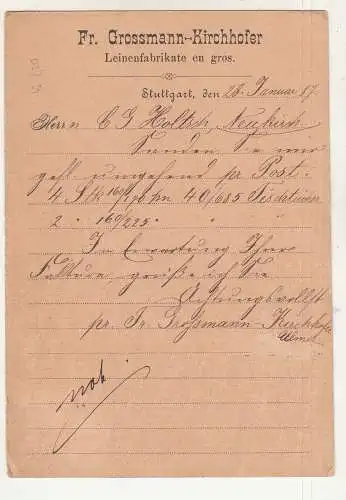 Fr. Grossmann-Kirchhofer
Leinenfabrikate en gros.
Stuttgart, den 28. Januar 87.
Herrn C G Holtsch, Neukirch
Senden Sie mir
gefl. umgehend pr Post:
4 Stk 160/170 40/685 Tischtücher
2 " 160/225 " "
In Erwartung Ihrer
Faktura, grüße ich Sie
Achtungsvollst
pr. Fr. Grossmann-Kirchhofer
not.